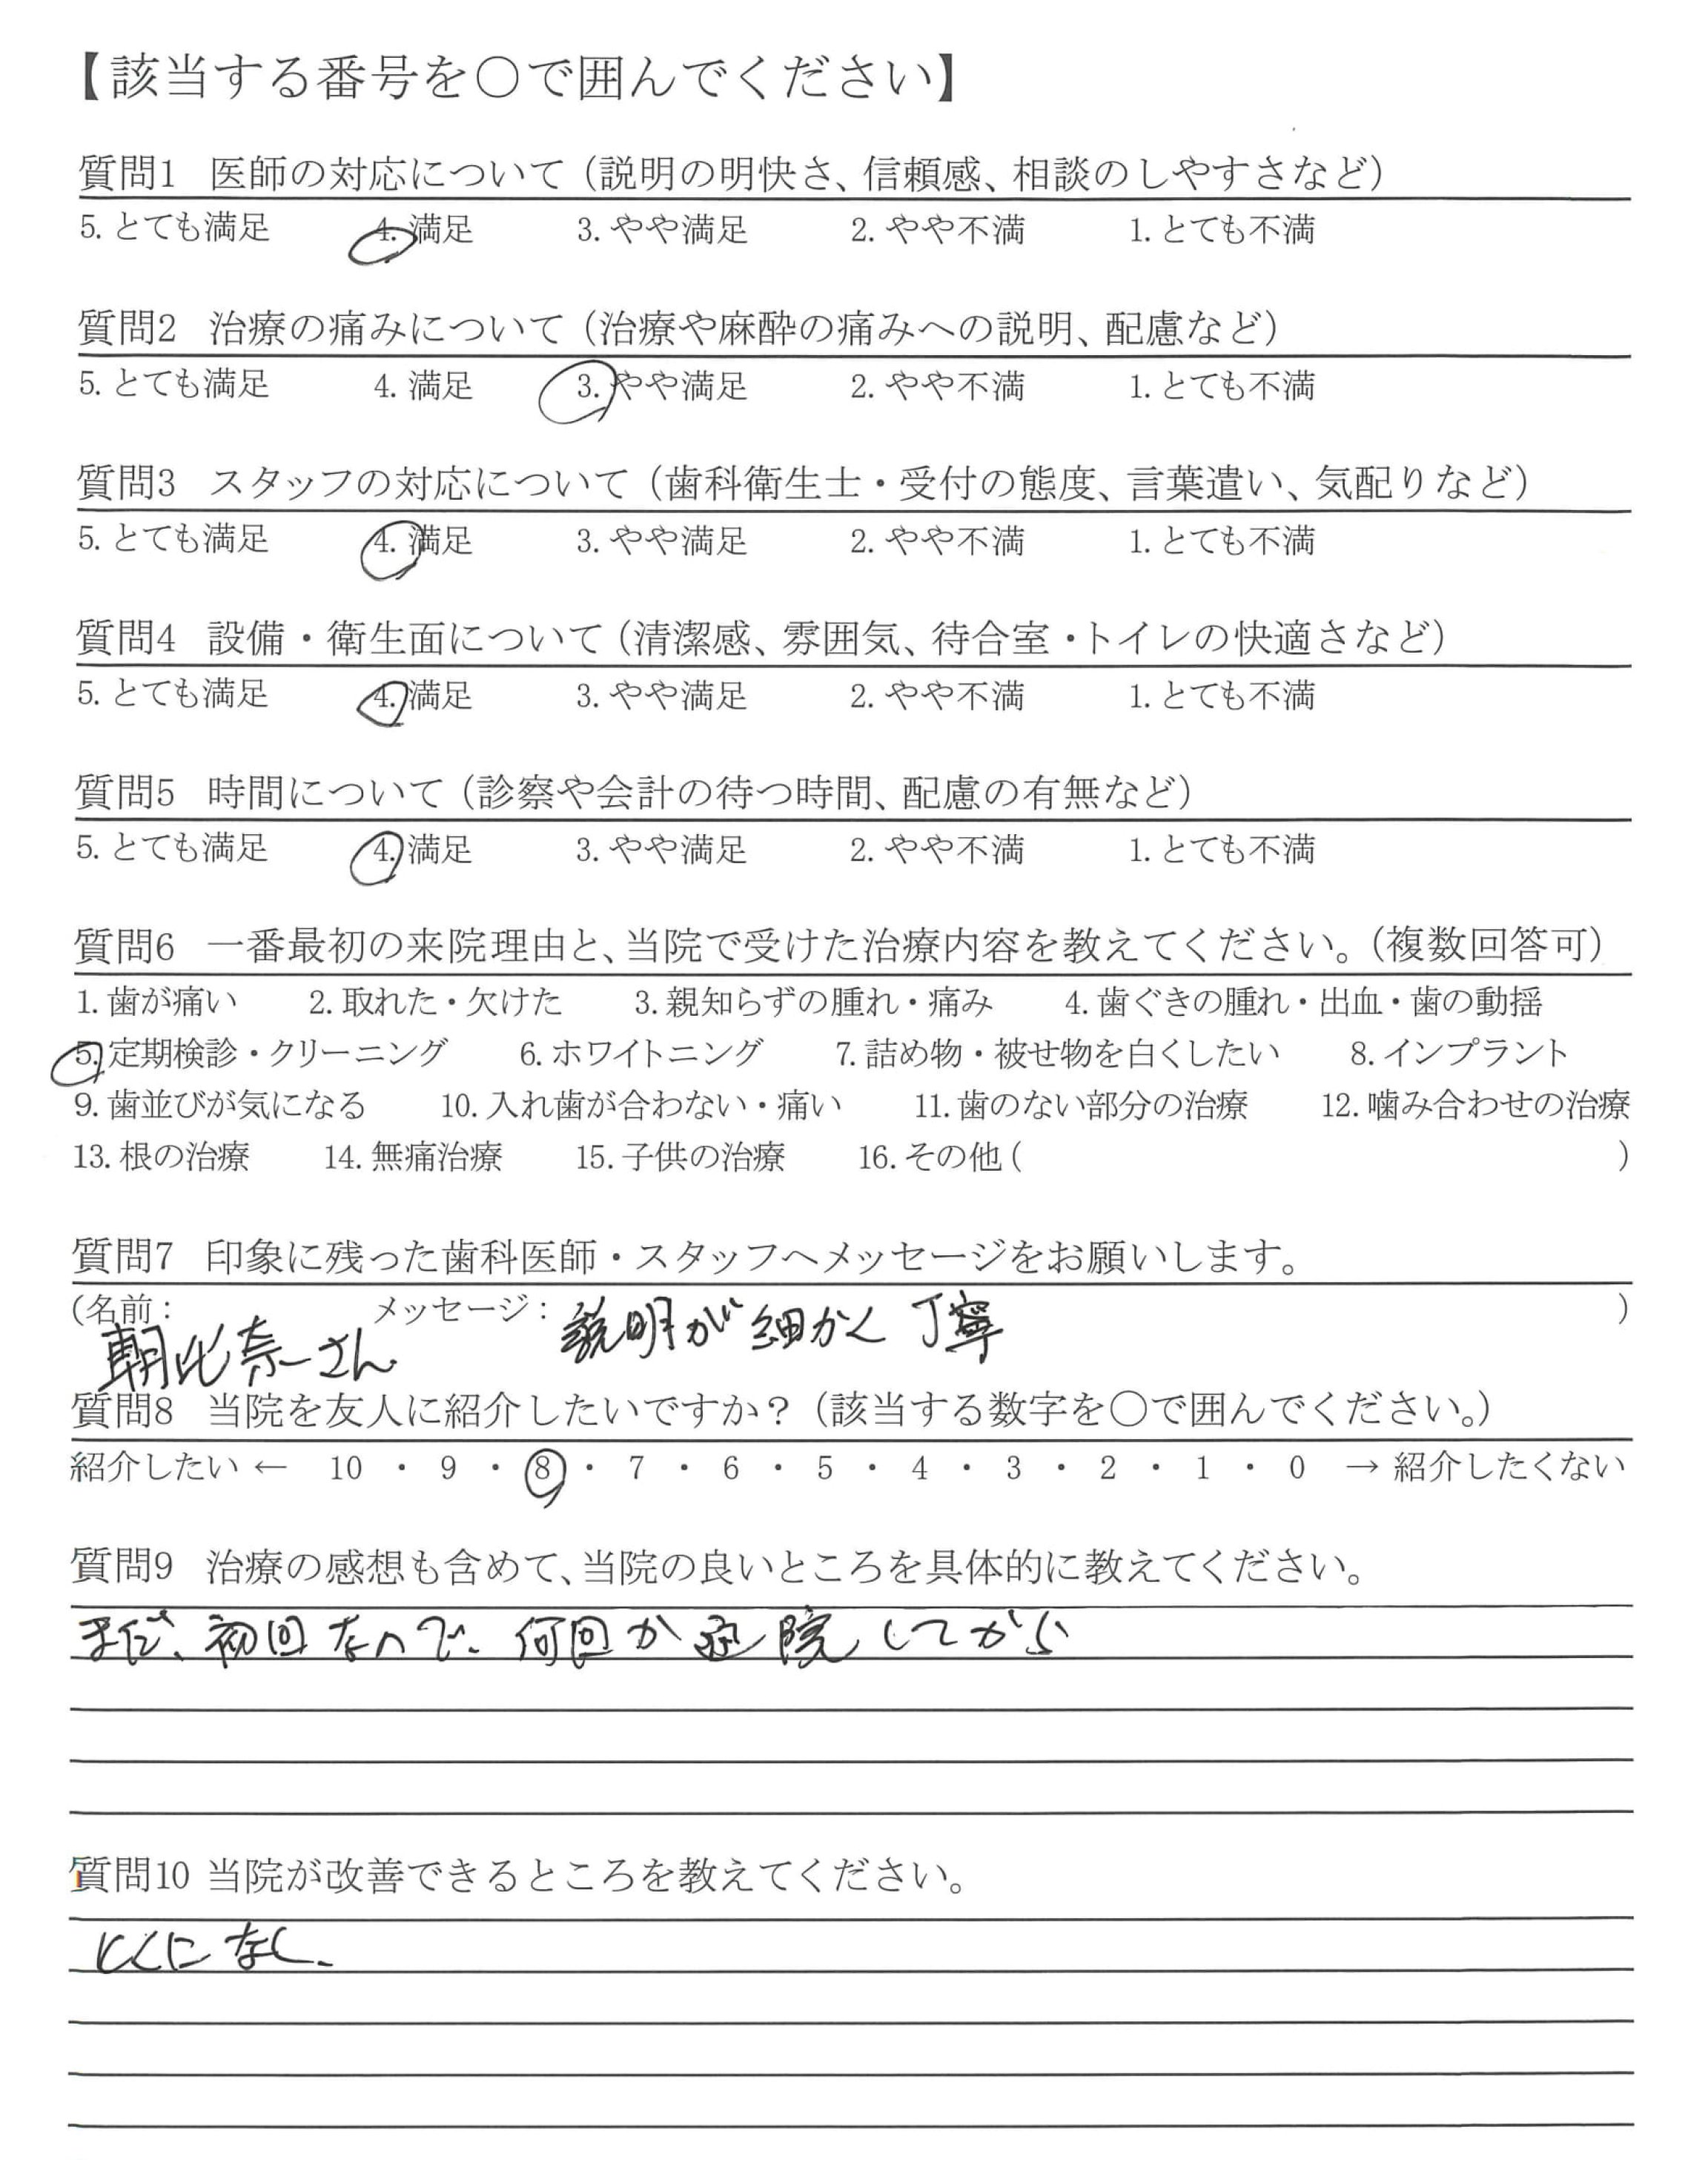 【該当する番号を○で囲んでください】
質問1 医師の対応について（説明の明快さ、信頼感、相談のしやすさなど）
5. とても満足 4. 満足 3. やや満足 2. やや不満 1. とても不満
質問2 治療の痛みについて（治療や麻酔の痛みへの説明、配慮など）
5. とても満足 4. 満足 3. やや満足 2. やや不満 1. とても不満
質問3 スタッフの対応について（歯科衛生士・受付の態度、言葉遣い、気配りなど）
5. とても満足 4. 満足 3. やや満足 2. やや不満 1. とても不満
質問4 設備・衛生面について（清潔感、雰囲気、待合室・トイレの快適さなど）
5. とても満足 4. 満足 3. やや満足 2. やや不満 1. とても不満
質問5 時間について（診察や会計の待つ時間、配慮の有無など）
5. とても満足 4. 満足 3. やや満足 2. やや不満 1. とても不満
質問6 一番最初の来院理由と、当院で受けた治療内容を教えてください。（複数回答可）
1. 歯が痛い 2. 取れた・欠けた 3. 親知らずの腫れ・痛み 4. 歯ぐきの腫れ・出血・歯の動揺
5. 定期検診・クリーニング 6. ホワイトニング 7. 詰め物・被せ物を白くしたい 8. インプラント
9. 歯並びが気になる 10. 入れ歯が合わない・痛い 11. 歯のない部分の治療 12. 噛み合わせの治療
13. 根の治療 14. 無痛治療 15. 子供の治療 16. その他（ ）
質問7 印象に残った歯科医師・スタッフへメッセージをお願いします。
（名前： メッセージ： ）
朝比奈さん 説明が細かく丁寧
質問8 当院を友人に紹介したいですか？（該当する数字を○で囲んでください。）
紹介したい ← 10 ・ 9 ・ 8 ・ 7 ・ 6 ・ 5 ・ 4 ・ 3 ・ 2 ・ 1 ・ 0 → 紹介したくない
質問9 治療の感想も含めて、当院の良いところを具体的に教えてください。
まだ、初回なので、何回か通院してから
質問10 当院が改善できるところを教えてください。
とくになし。